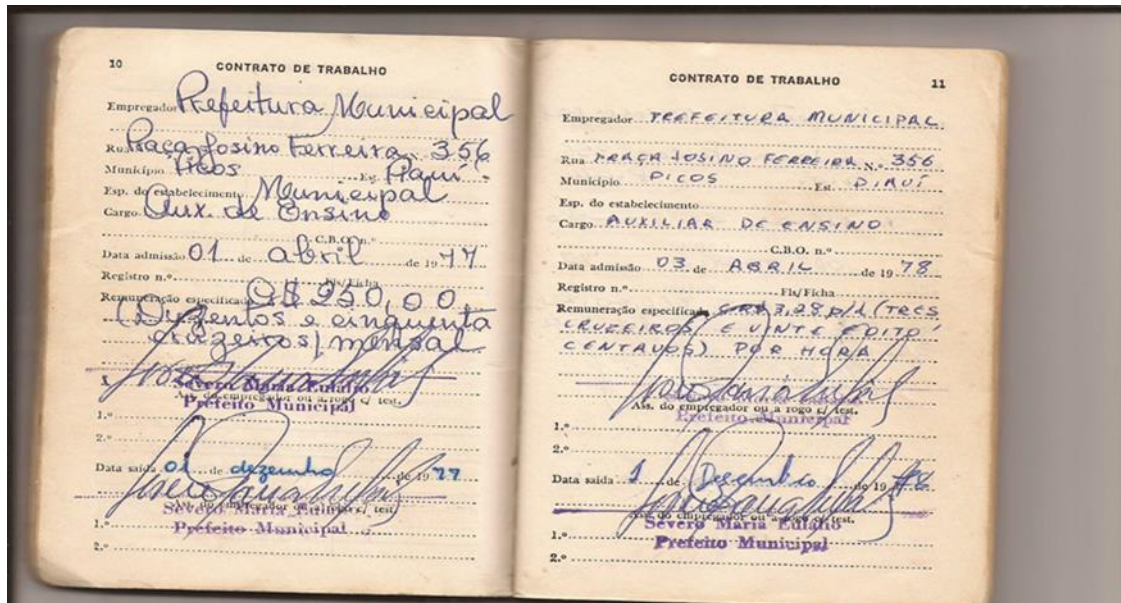 10 CONTRATO DE TRABALHO
Empregador Prefeitura Municipal
Rua Praça Josino Ferreira 356
Município Picos Est. Piauí
Esp. do estabelecimento Municipal
Cargo Aux. de Ensino
C.B.O. n.º
Data admissão 01 de abril de 1977
Registro n.º Fls/Ficha
Remuneração especificada 250,00
(Duzentos e cinquenta
cruzeiros) mensal
Severo Maria Eulálio
Prefeito Municipal
Ass. do empregador ou a rogo c/ test.
1.º
2.º
Data saída 01 de dezembro de 1977
Ass. do empregador ou a rogo c/ test.
Severo Maria Eulálio
1.º Prefeito Municipal
2.º
CONTRATO DE TRABALHO 11
Empregador PREFEITURA MUNICIPAL
Rua PRAÇA JOSINO FERREIRA N.º 356
Município PICOS Est. PIAUÍ
Esp. do estabelecimento
Cargo AUXILIAR DE ENSINO
C.B.O. n.º
Data admissão 03 de ABRIL de 1978
Registro n.º Fls/Ficha
Remuneração especificada 3,28 (TRES
CRUZEIROS E VINTE E OITO
CENTAVOS) POR HORA
Ass. do empregador ou a rogo c/ test.
Prefeito Municipal
1.º
2.º
Data saída 1 de Desembro de 1978
Ass. do empregador ou a rogo c/ test.
Severo Maria Eulálio
1.º Prefeito Municipal
2.º